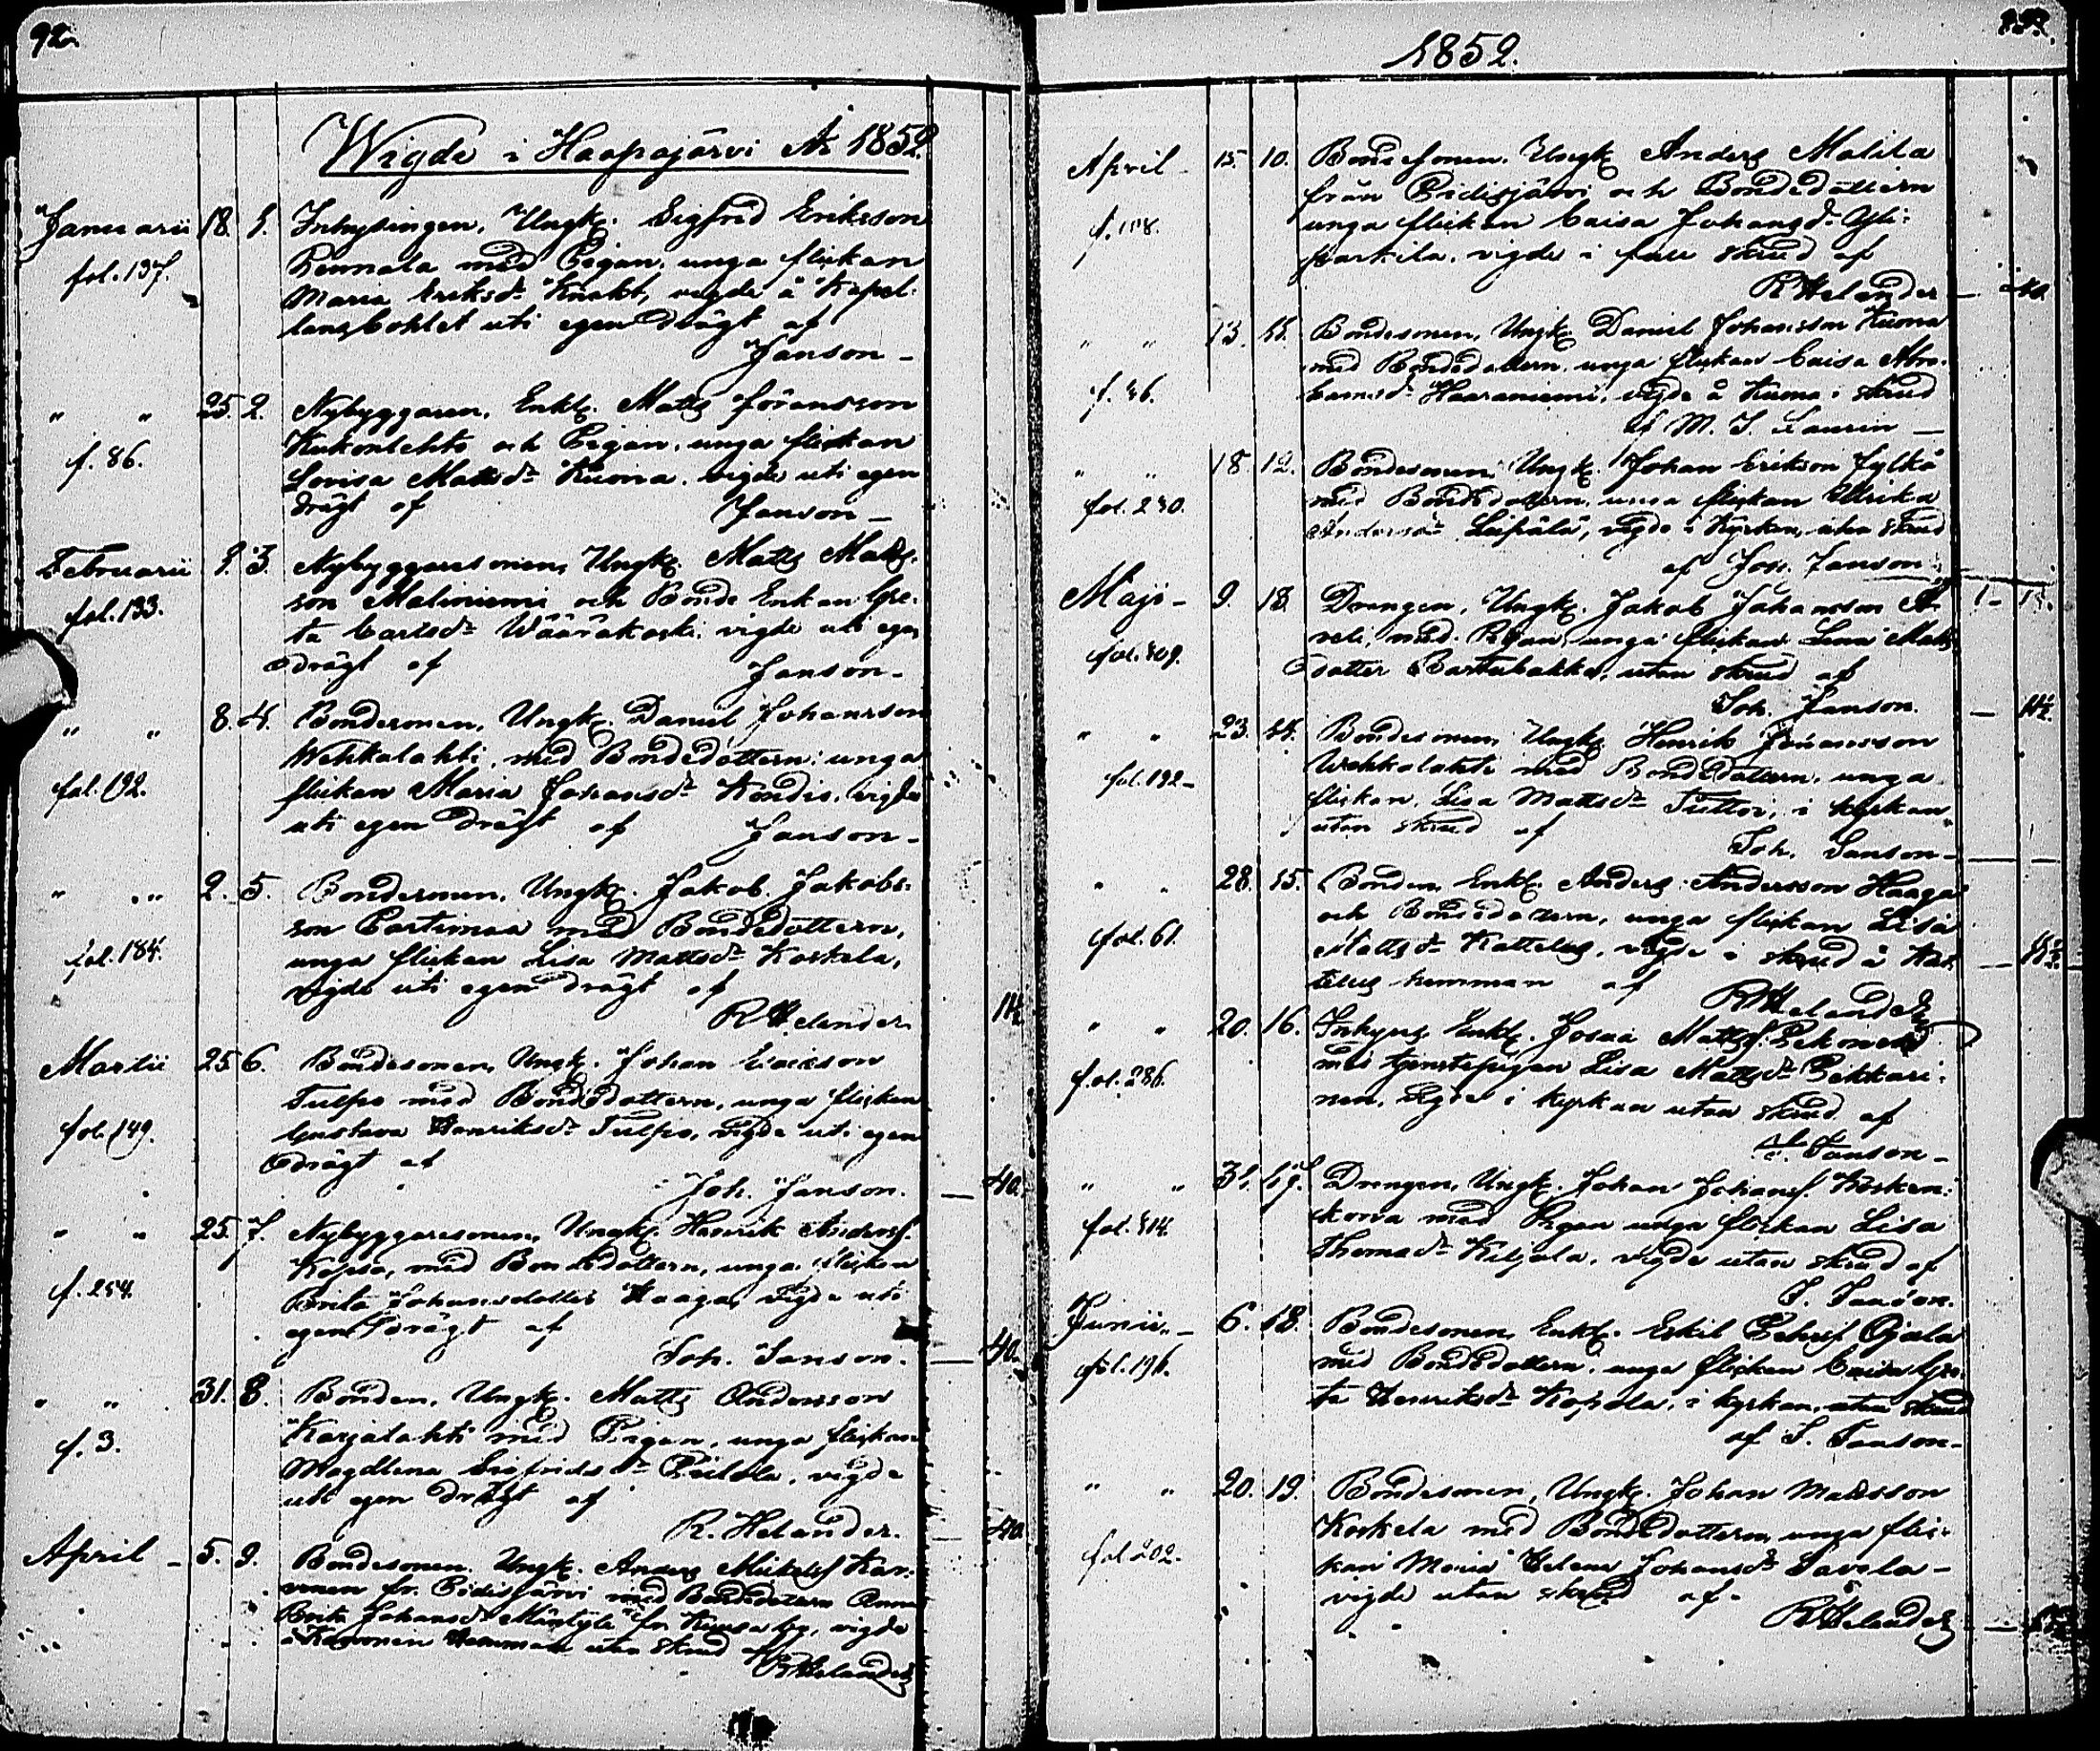 92.
Wigde i Haapajärvi År 1852.
Januarii 18. 1. Inhysingen, Ungk. Sigfrid Eriksson
fol. 137. med Pigan, unga flickan
Maria Eriksdr Knekt, vigde å Kapel-
lansbohlet uti egen drägt af
Janson -
" " 25. 2. Nybyggaren, Enkl. Matts Göransson
f. 86. Kukonlehto och Pigan, unga flickan
Lovisa Mattsdr Kuona, vigde uti egen
drägt af Janson -
Februarii 3. Nybyggaresonen, Ungk. Matts Matts-
fol. 133. son Maliniemi och Bonde Enkan Gre-
ta Carlsdr Wääräkoski, vigde uti egen
drägt af Janson -
" " 8. 4. Bondesonen, Ungk. Daniel Johansson
fol. 192. Wehkalahti, med Bondedottern, unga
flickan Maria Johansdr Kondis, vigde
uti egen drägt af Janson -
" " 2. 5. Bondesonen, Ungk. Jakob Jakobs-
fol. 184. son Partimaa med Bondedottern,
unga flickan Lisa Mattsdr Koskela,
vigde uti egen drägt af
R Helander.
Martii 25 6. Bondesonen, Ungk. Johan Ericsson
fol. 149. Tulpo med Bondedottern, unga flickan
Gustava Henriksdr Tulpo, vigde uti egen
drägt af
Joh. Janson. — 40.
" " 25. 7. Nybyggaresonen, Ungk. Henrik Andersf.
f. 254. Kopsa, med Bondedottern, unga flickan
Brita Johansdotter Haaga, vigde uti
egen drägt af
Joh. Janson. — 40.
" " 31. 8. Bonden, Ungk. Matts Andersson
f. 3. Karjalahti med Pigan, unga flickan
Magdlena Sigfridsdr Pietola, vigde
uti egen drägt af
R. Helander. 40
April - 5. 9. Bondesonen, Ungk. Anders Mickelsf. Kar-
vonen fr. Pidisjärvi med Bondedottern Anna
Brita Johansdr Mäntylä fr. Kuusa by, vigde
å Karvonen Hemman utan skrud af
R Helander
1852.
April - 15. 10. Bondesonen, Ungk. Anders Malila
f. 118. från Pidisjärvi och Bondedottern
unga flickan Caisa Johansdr Yli-
parkila, vigde i full skrud af
R Helander — 40.
" " 13. 11. Bondesonen, Ungk. Daniel Johansson Kuona
f. 46. med Bondedottern, unga flickan Caisa Abra-
hamsdr Haaraniemi, vigde å Kuona i skrud
af M. J. Laurin —
" " 18. 12. Bondesonen, Ungk. Johan Erikson Jylkä
fol. 230. med Bondedottern, unga flickan Ulrika
Andersdr Lapiala, vigde i Kyrkan, utan skrud
af Joh. Janson.
Maji - 9. 13. Drengen, Ungk. Jakob Johansson
fol. 309. med Pigan, unga flickan Lena Matts
dotter, utan skrud af
Joh. Janson. —
" " 23. 14. Bondesonen, Ungk. Henrik Johansson
fol. 192 - Wehkalahti med Bondedottern, unga
flickan, Lisa Mattsdr Tuttoi, i kyrkan,
utan skrud af
Joh. Janson —
" " 28. 15. Bonden, Enkl. Anders Andersson Haaga
fol. 61. och Bondedottern, unga flickan Lisa
Mattsdr Kattelus, vigde i skrud å Kat-
telus hemman af
R Helander
" " 20. 16. Inhyses Enkl. Josua Mattsf. Pekonen
fol. 286. med tjenstepigan Lisa Mattsdr Pekkari-
nen, vigde i kyrkan utan skrud af
J. Janson -
" " 31. 17. Drengen, Ungk. Johan Johansf. Kosken-
fol. 314. korva med Pigan unga flickan Lisa
Thomasdr Kiljala, vigde utan skrud af
J. Janson.
Junii. - 6. 18. Bondesonen, Enkl. Eskil Ojala
fol. 196. med Bondedottern, unga flickan Caisa Gre-
ta Henriksdr Kopola, i kyrkan, utan skrud
af J. Janson -
" " 20. 19. Bondesonen, Ungk. Johan Mattsson
fol 202. Koskela med Bondedottern, unga flic-
kan Maria Helena Johansdr Savela -
vigde utan skrud af -
R Helander